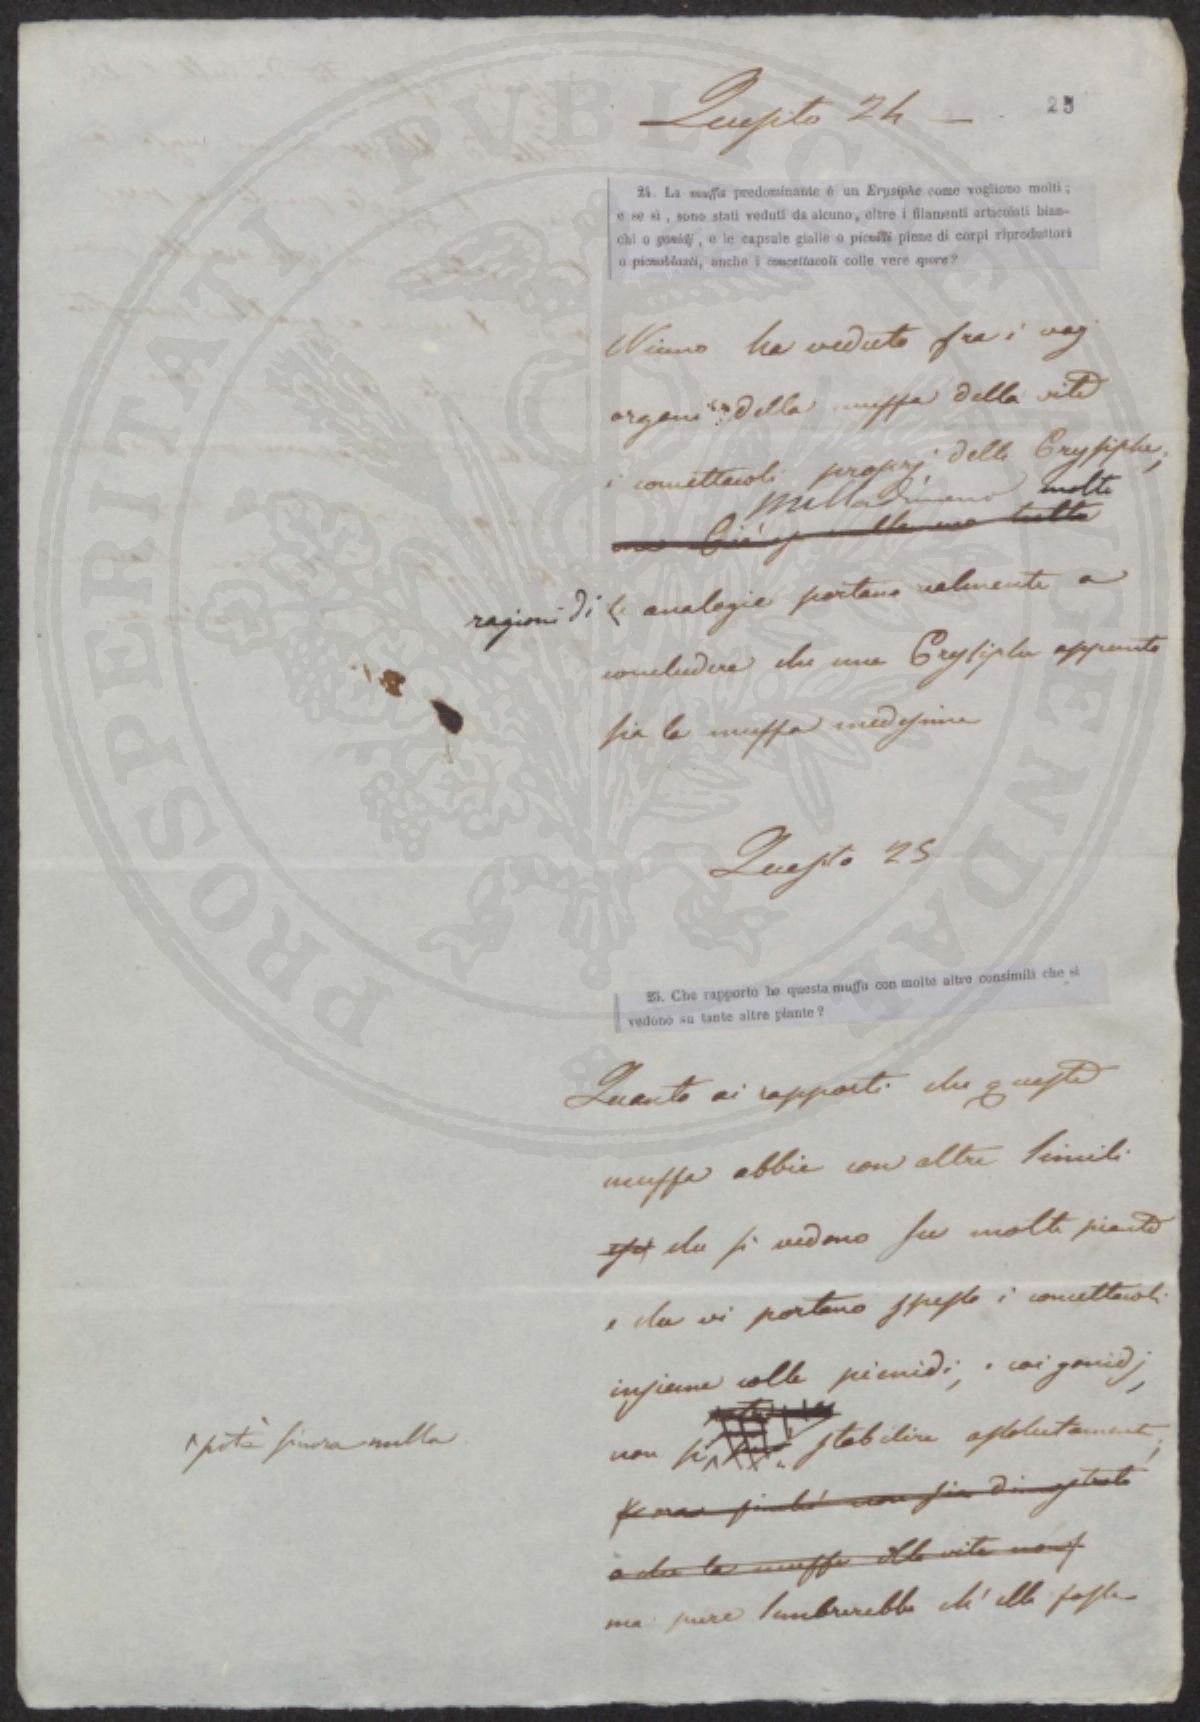 Quesito 24 —
25
24. La muffa predominante è un Erysiphe come vogliono molti;
e se sì, sono stati veduti da alcuno, oltre i filamenti articolati bian-
chi o gonidj, e le capsule gialle o picnidi piene di corpi riproduttori
o picnoblasti, anche i concettacoli colle vere spore?
Niuno ha veduto fra i varj
organi della muffa della vite
i concettacoli proprj delle Erysiphe;
nulladimeno molte
ma Ciò nulla ma tutte
ragioni di
le analogie portano realmente a
concludere che una Erysiphe appunto
sia la muffa medesima
Quesito 25
25. Che rapporto ha questa muffa con molte altre consimili che si
vedono su tante altre piante?
Quanto ai rapporti che queste
muffa abbia con altre simili
che si vedono su molte piante
e che vi portano spesso i concettacoli
insieme colle picnidi, e coi gonidj,
non si stabilire assolutamente;
potè finora nulla
finchè non sia dimostrato
o che la muffa della vite non
ma pure sembrerebbe ch'ella fosse
PROSPERITATI PUBLICAE AUGENDAE